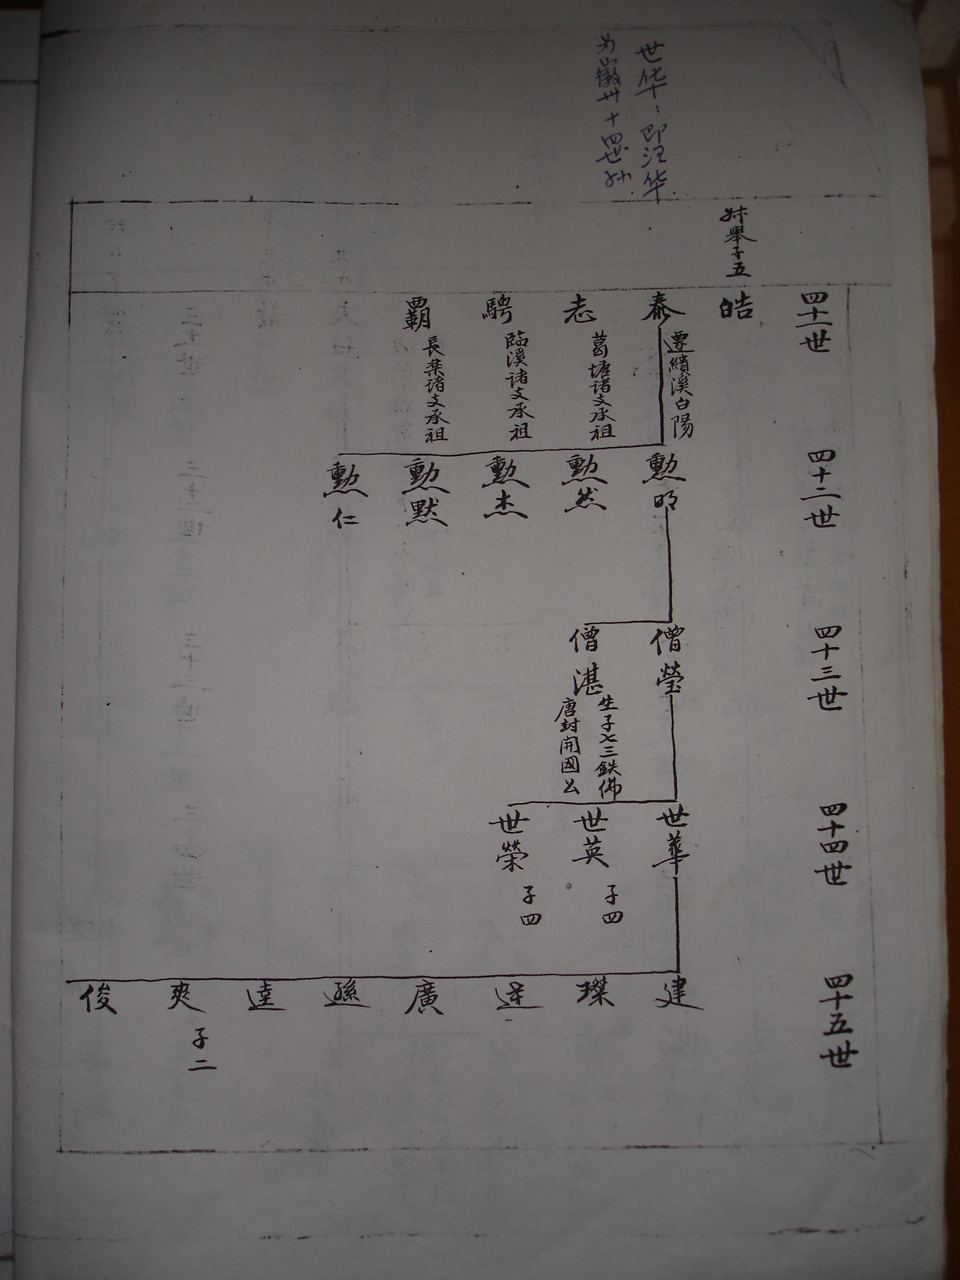 世华：即汪华
为山徽卅十四世孙
舉子五
四十一世
皓
泰
遷績溪白陽
志
葛塘诸文承祖
騁
臨溪诸文承祖
覇
長枼诸文承祖
四十二世
勲明
勲然
勲杰
勲默
勲仁
四十三世
僧瑩
僧湛
生子七三鉄佛
唐封開國公
四十四世
世華
世英
子四
世榮
子四
四十五世
建
璨
達
廣
遜
逵
爽
子二
俊